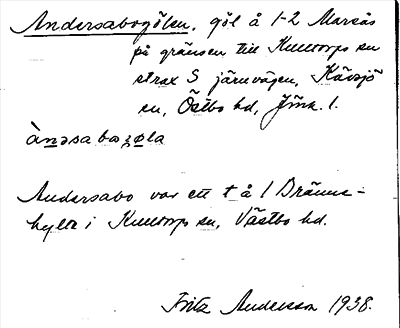 Andersabogölen, göl å 1-2 Marsås
på gränsen till Kulltorps sn
strax S järnvägen, Kävsjö
sn, Östbo hd, Jönk. l.
àndsabogøla
Andersabo var ett t å 1 Bränne-
hylte i Kulltorps sn, Västbo hd.
Fritz Andersson 1938.